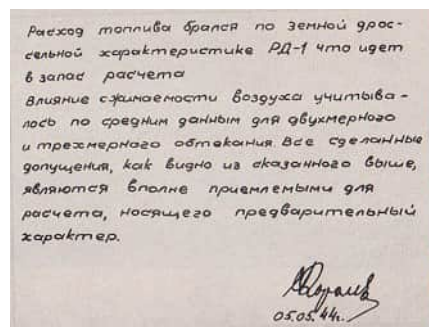 Расход топлива брался по земной дрос-
сельной характеристике РД-1 что идет
в запас расчета
Влияние сжимаемости воздуха учитыва-
лось по средним данным для двухмерного
и трехмерного обтекания. Все сделанные
допущения, как видно из сказанного выше,
являются вполне приемлемыми для
расчета, носящего предварительный
характер.
Королев
05.05.44г.